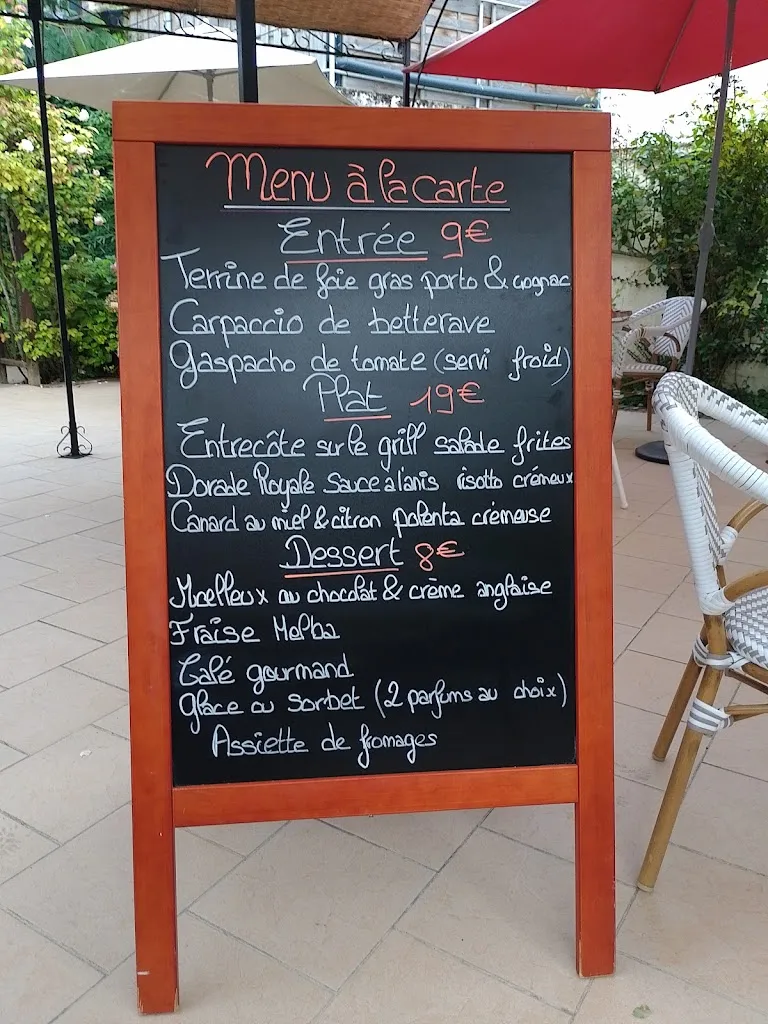 Menu à la carte
Entrée 9€
Terrine de foie gras porto & cognac
Carpaccio de betterave
Gaspacho de tomate (servi froid)
Plat 19€
Entrecôte sur le grill salade frites
Dorade Royale sauce a l'anis risotto crémeux
Canard au miel & citron polenta crémeuse
Dessert 8€
Moelleux au chocolat & crème anglaise
Fraise Melba
Café gourmand
Glace ou sorbet (2 parfums au choix)
Assiette de fromages